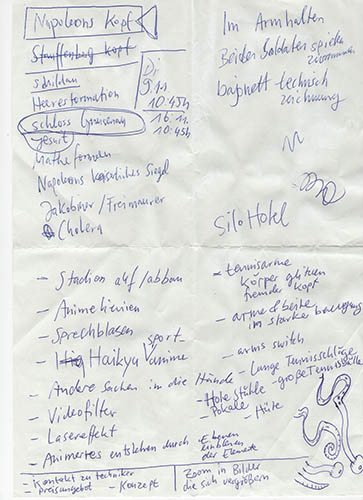 Napoleons Kopf
Stauffenberg Kopf
schildau
Heeresformation
schloss
jesuit
Mathe formeln
Napoleons kaiserliches Siegel
Jakobiner / Freimaurer
Cholera
Di
9.11
10:45h
16.11.
10:45h
Im Armhalten
Beide Soldaten spielen
zusammen
bajonett technisch
zeichnung
Silo Hotel
- Stadion auf/abbau
- Anime linien
- Sprechblasen
- Haikyu sport-
anime
- Andere Sachen in die Hände
- Videofilter
- Lasereffekt
- Animertes entstehen durch Ebenen
einblenden
der Elemente
- tennisarme
körper glitzern
fremder kopf
- arme & beine
in starker bewegung
- arms switch
- lange Tennisschläger
- Hohe Stühle - große Tennisbälle
- Pokale - Hüte
- Kontakt zu techniker
- preisangebot - Konzept
Zoom in Bilder
die sich vergrößern